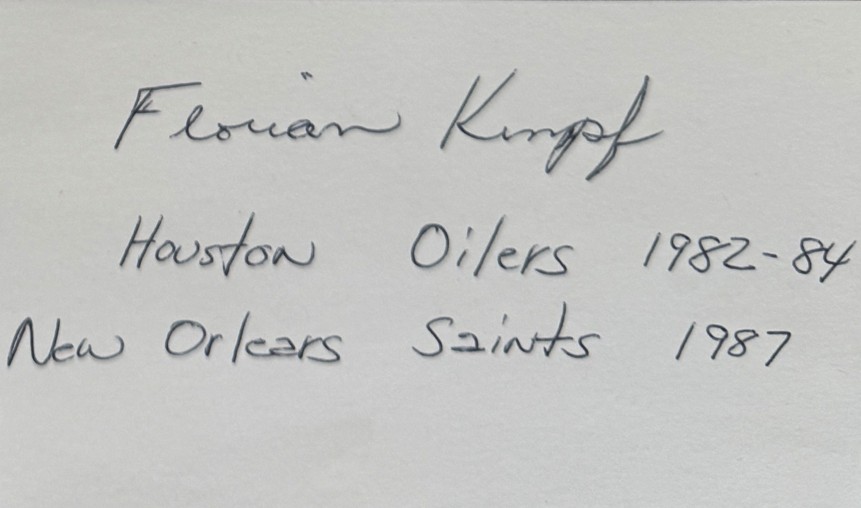 Florian Kempf
Houston Oilers 1982-84
New Orleans Saints 1987